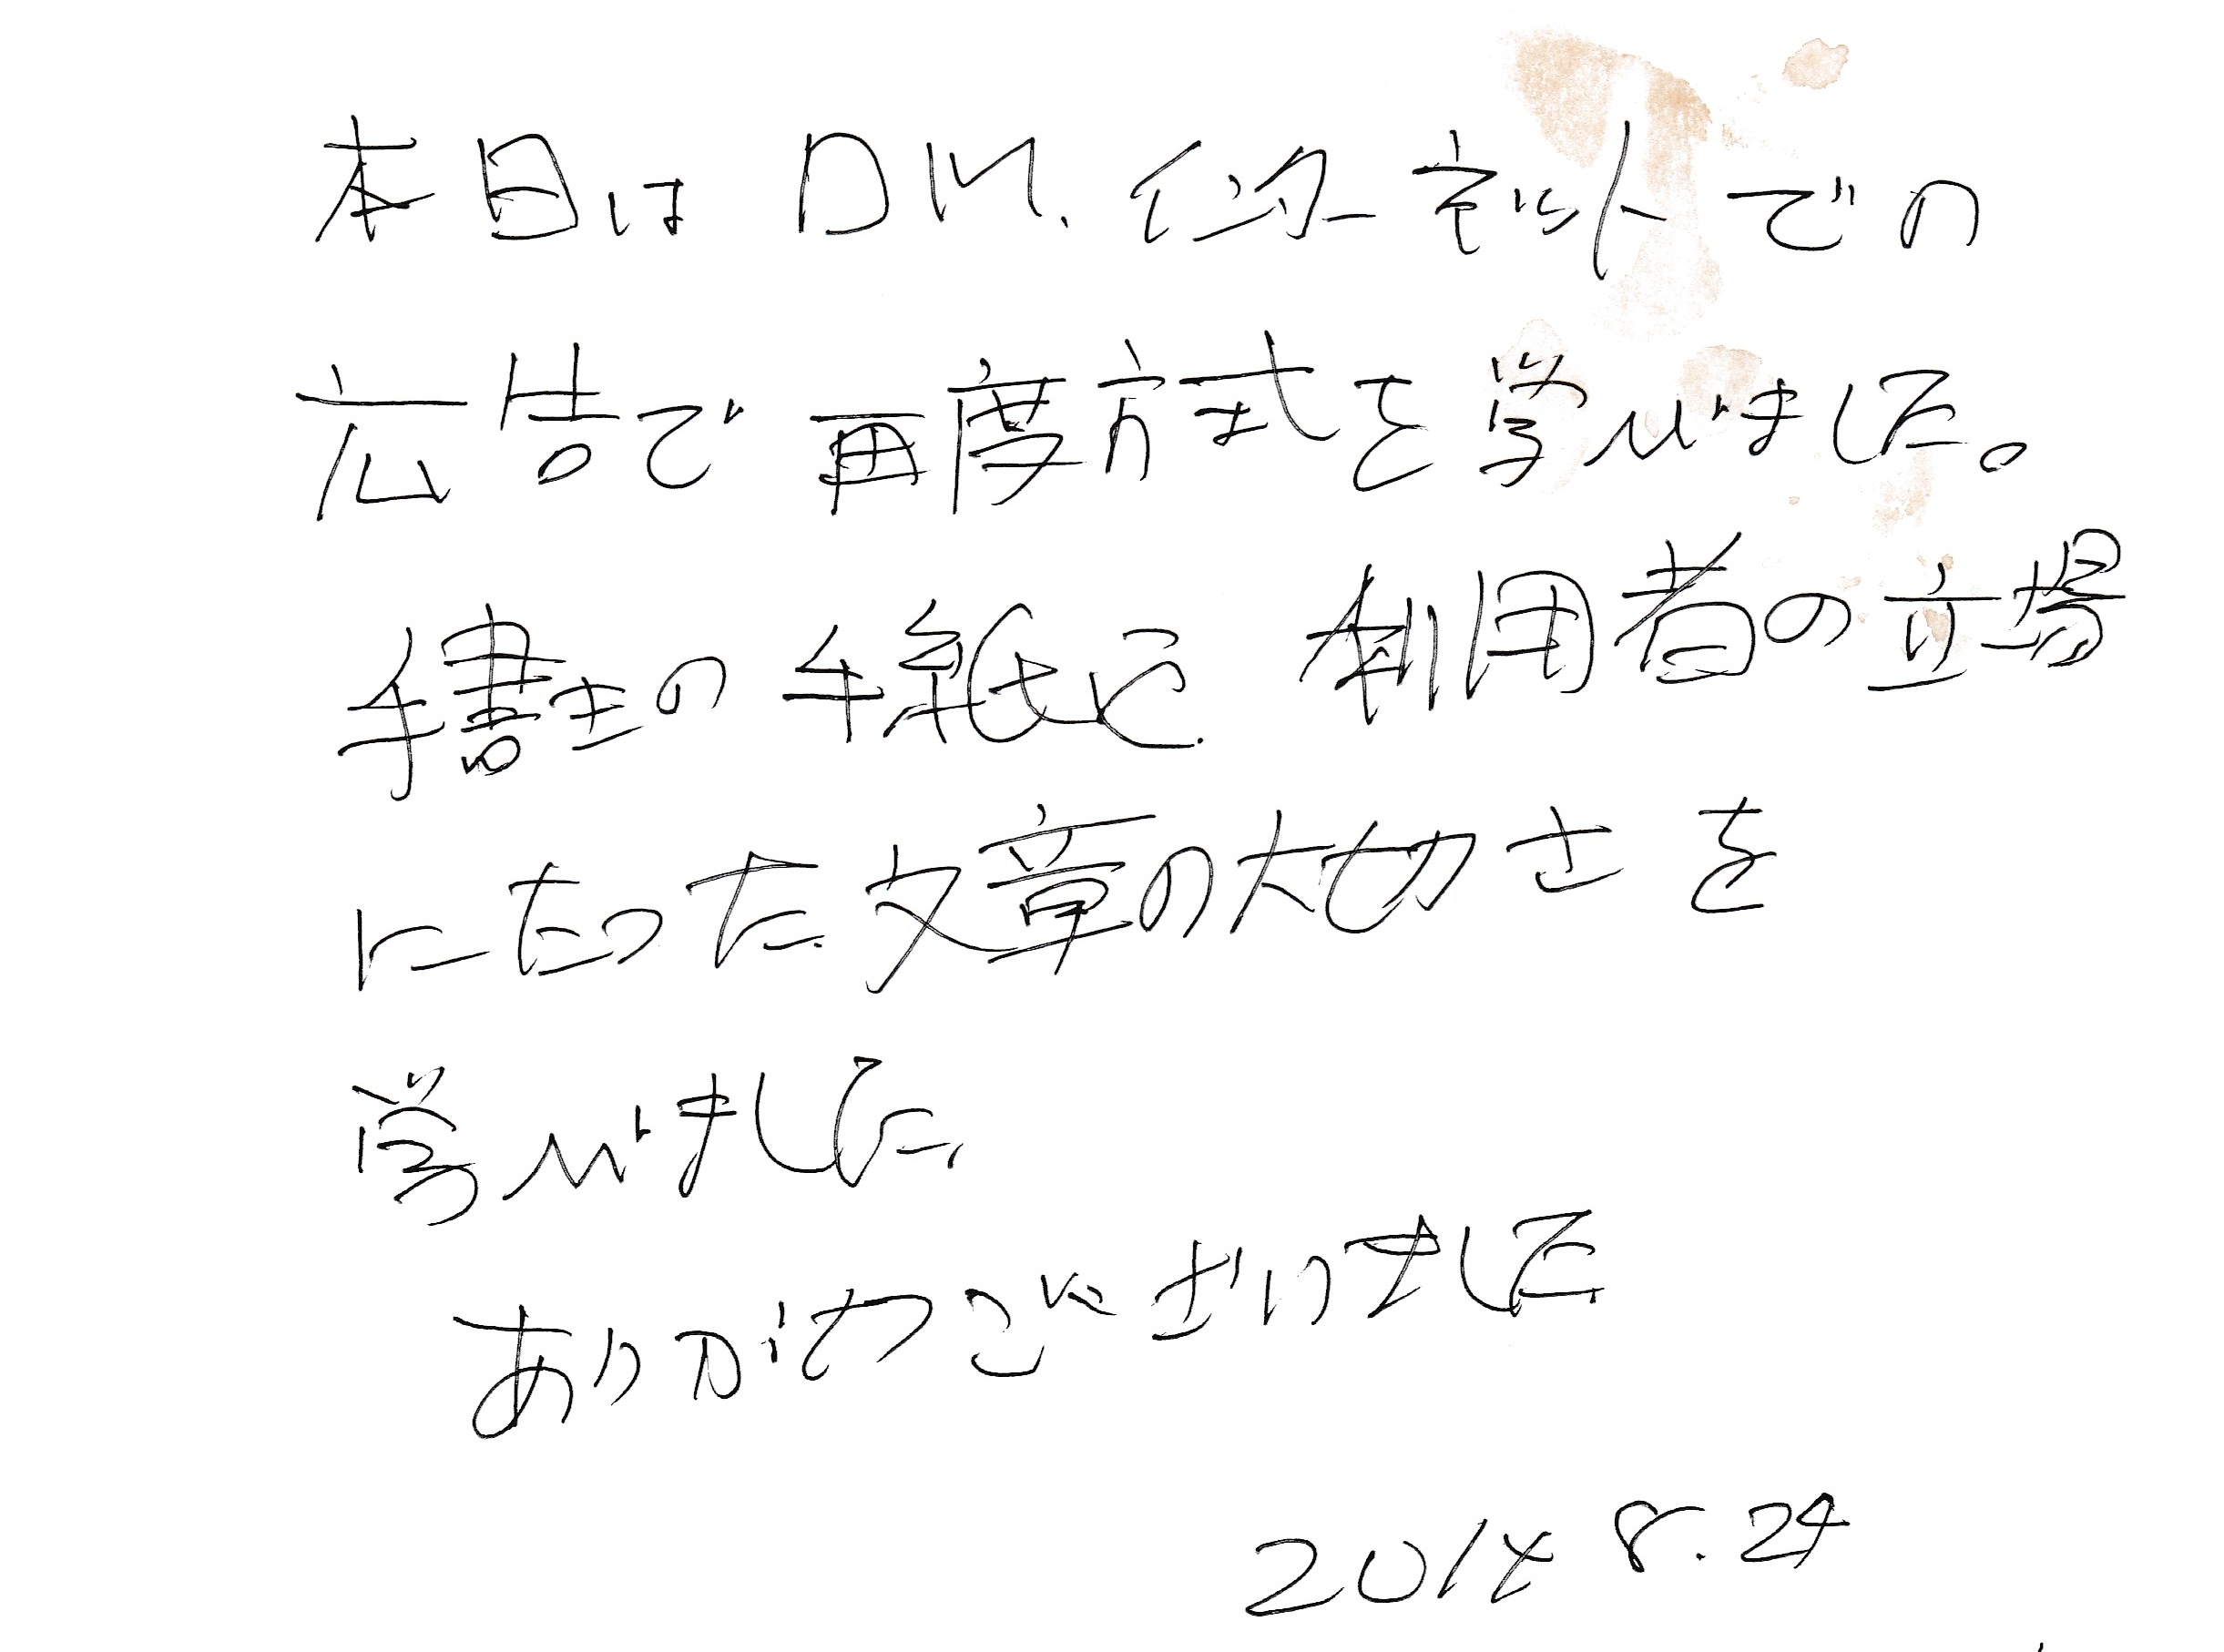 本日は DM、インターネットでの
広告で再度方式を学びました。
手書きの手紙と、利用者の立場
にたった、文章の大切さを
学びました、
ありがとうございました
2014 8.24